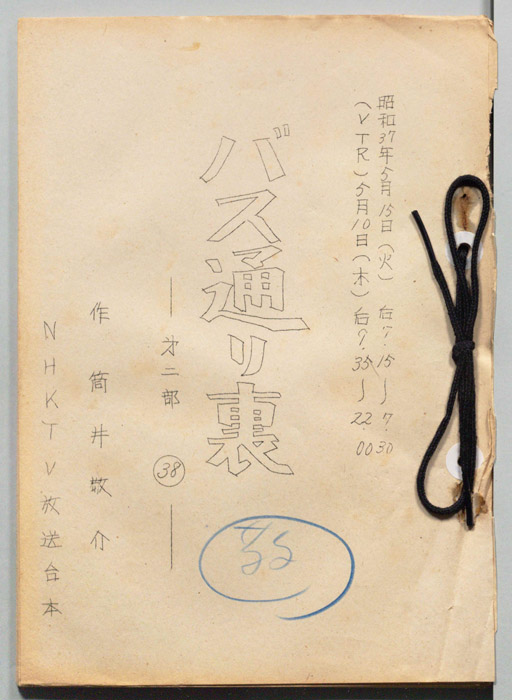 昭和37年5月15日（火）后7.15～7.30
（VTR）5月10日（木）后9.35～22.00
バス通り裏
―才二部 ㊳―
作 筒井敬介
NHKTV放送台本